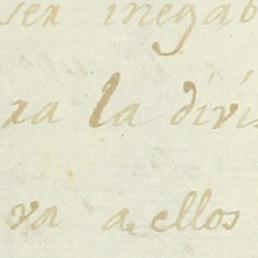 ser inegab
ra la divi
va a ellos